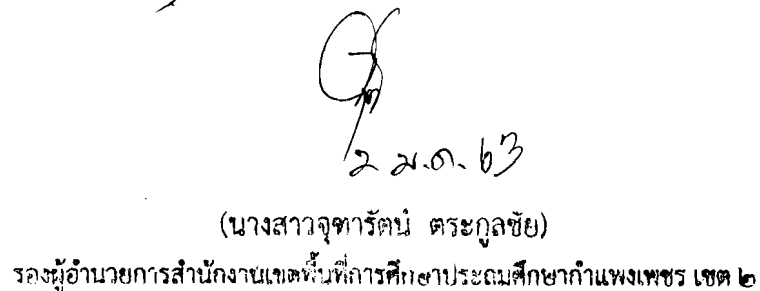 ๒ ม.ค. ๖๓
(นางสาวจุฑารัตน์ ตระกูลชัย)
รองผู้อำนวยการสำนักงานเขตพื้นที่การศึกษาประถมศึกษากำแพงเพชร เขต ๒